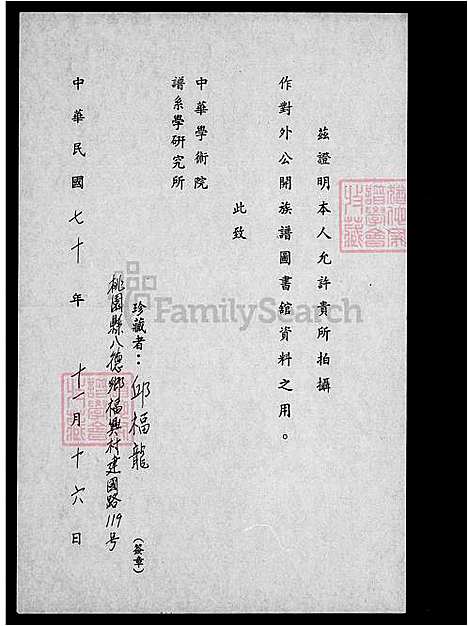 茲證明本人允許貴所拍攝
作對外公開族譜圖書舘資料之用。
此致
中華學術院
譜系學研究所
珍藏者：邱福龍（簽章）
桃園縣八德鄉福興村建國路119号
中華民國七十年十一月十六日
FamilySearch